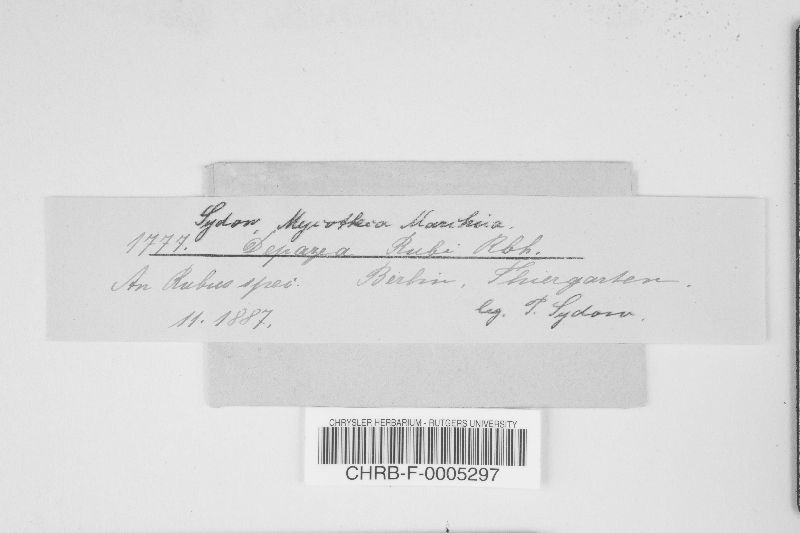 Sydow, Mycotheca Marchica.
1777. Depazea Rubi Rbh.
An Rubus spei. Berlin, Thiergarten.
11. 1887. leg. P. Sydow.
CHRYSLER HERBARIUM - RUTGERS UNIVERSITY
CHRB-F-0005297